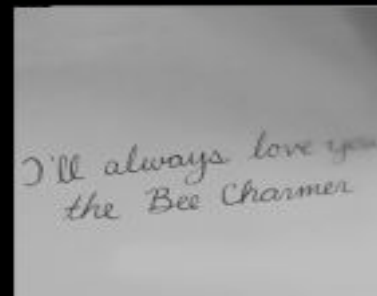 I'll always love you
the Bee Charmer